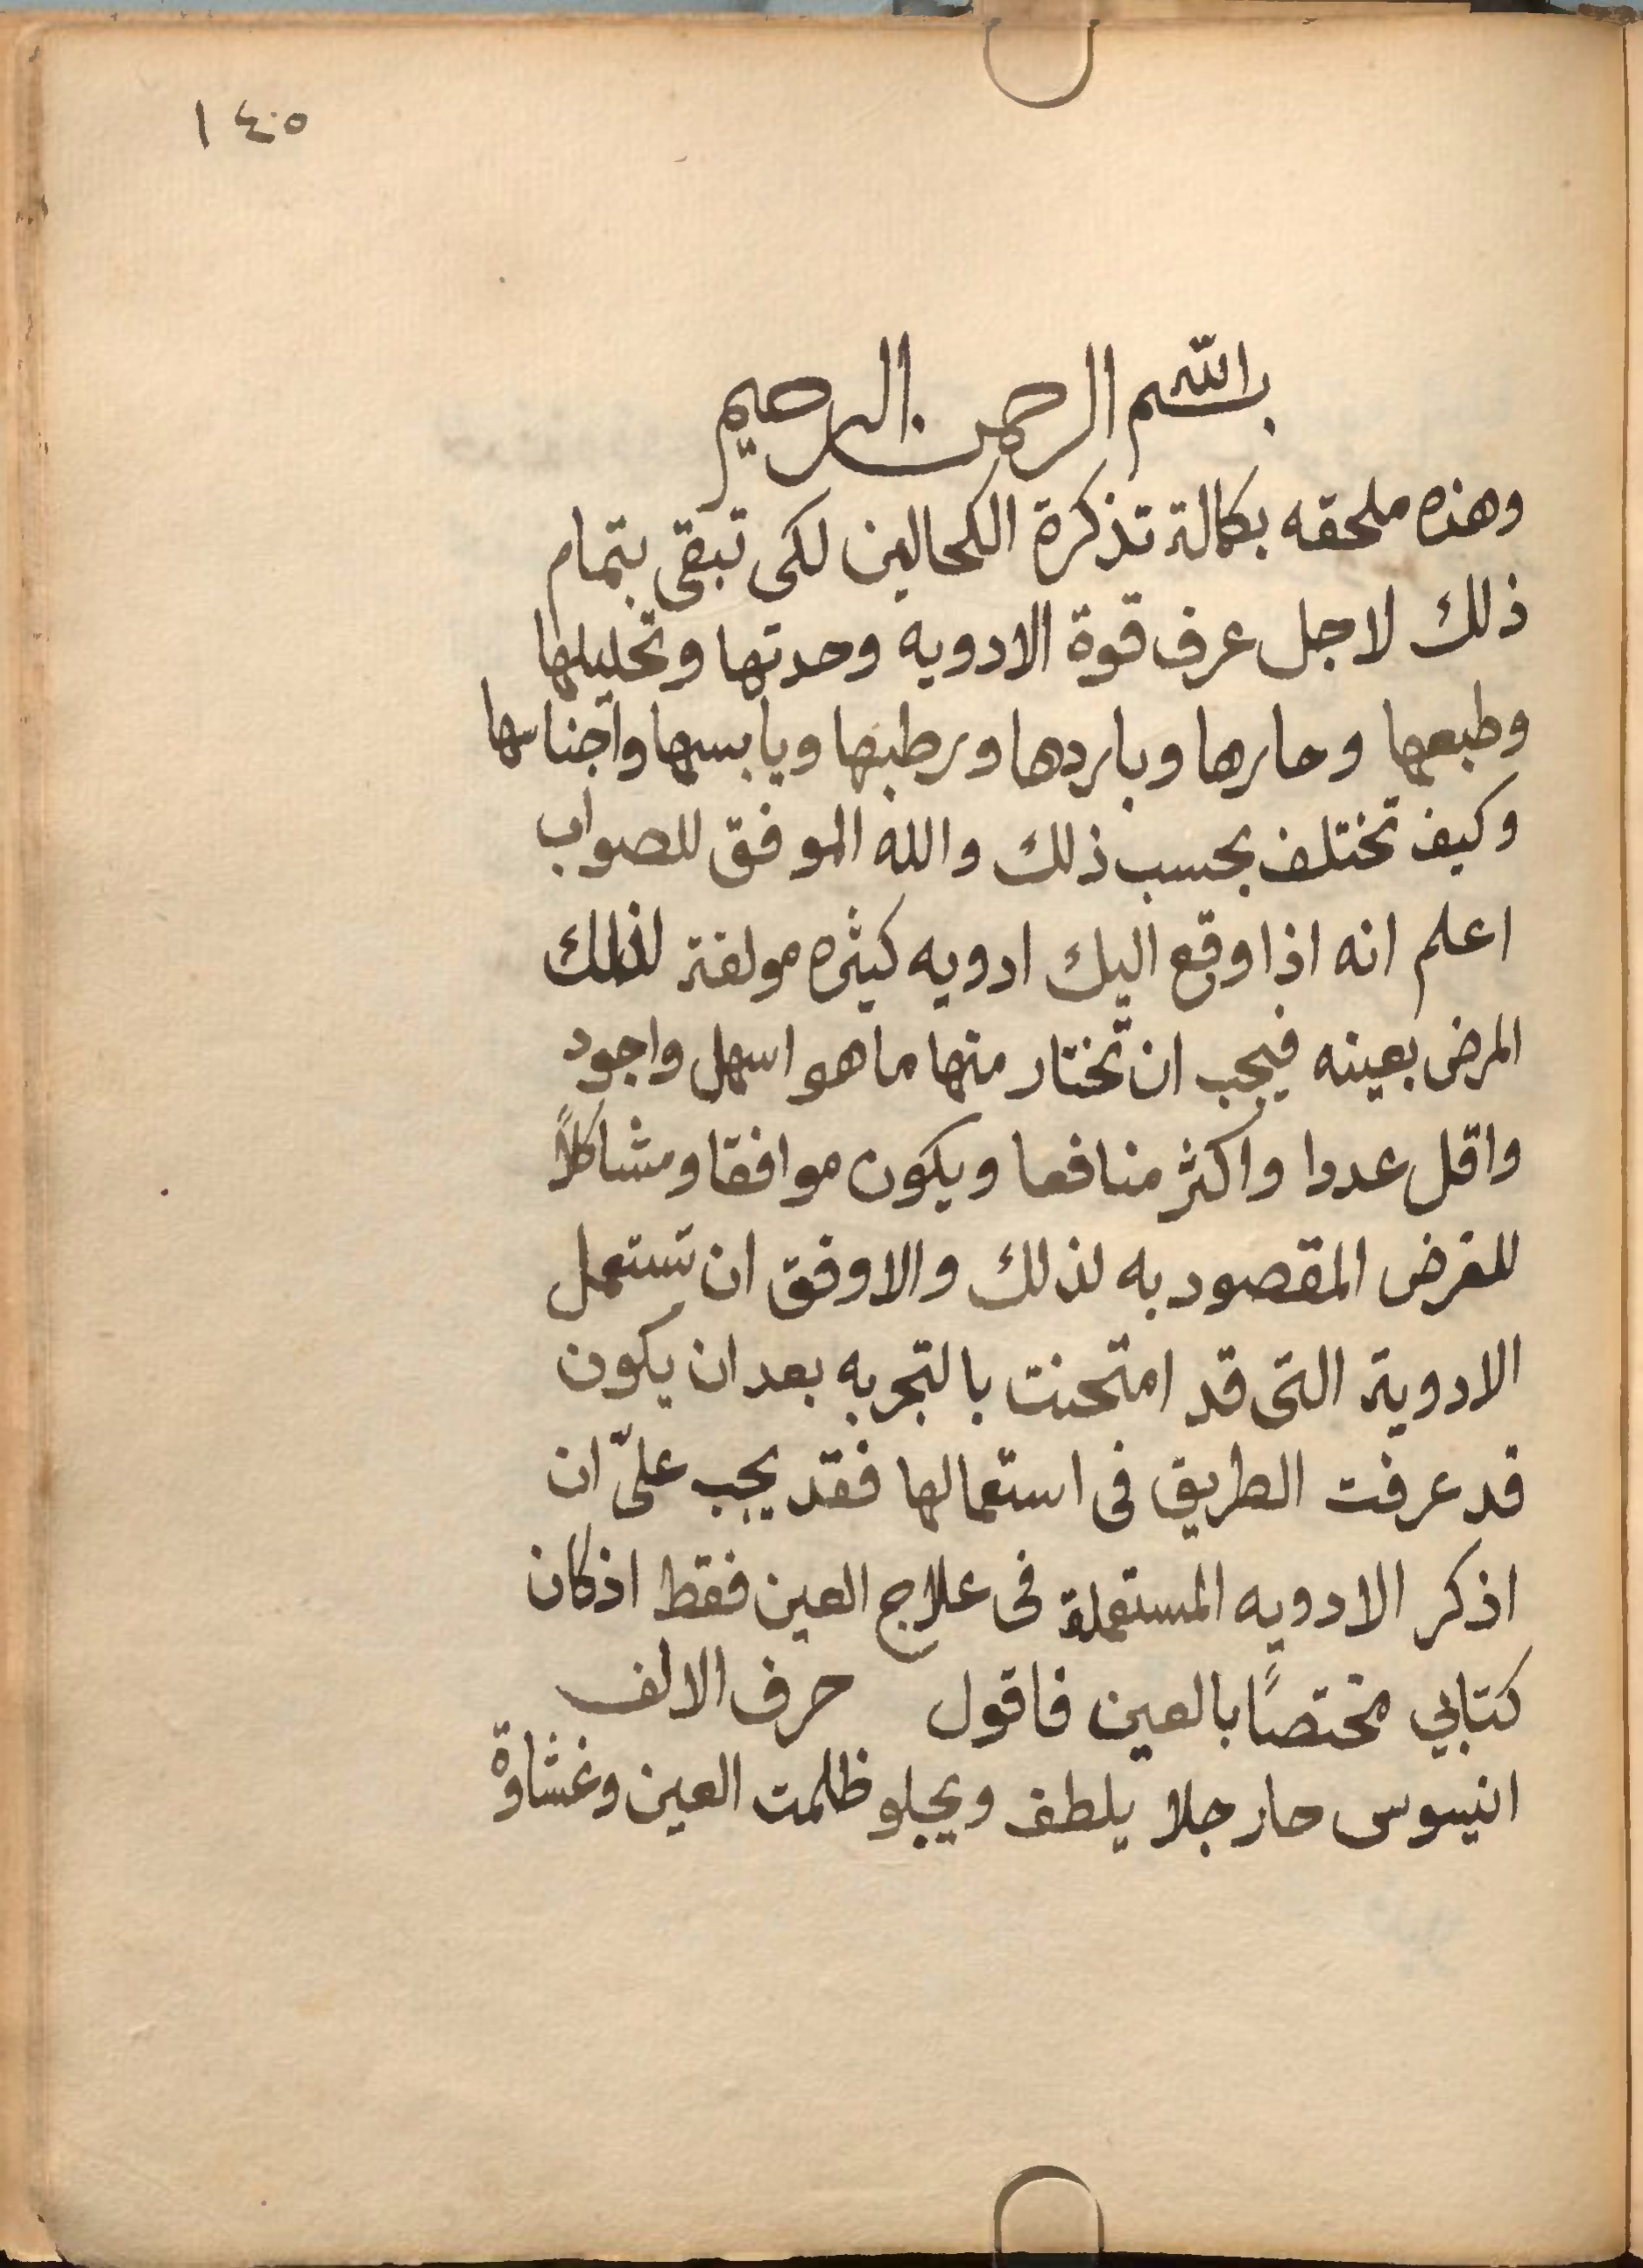 ١٤٥
بسم الله الرحمن الرحيم
وهذه ملحقه بكمالة تذكرة الكحالين لكى تبقى بتمام
ذلك لاجل عرف قوة الادويه وحدتها وتحليلها
وطبعها وحارها وباردها ورطبها ويابسها واجناسها
وكيف تختلف بحسب ذلك والله الموفق للصواب
اعلم انه اذا وقع اليك ادويه كثيره مولفة لذلك
المرض بعينه فيجب ان تختار منها ما هو اسهل واجود
واقل عددا واكثر منافعا ويكون موافقا ومشاكلاً
للغرض المقصود به لذلك والاوفق ان تستعمل
الادوية التى قد امتحنت بالتجربه بعد ان يكون
قد عرفت الطريق فى استعمالها فقد يجب علىّ ان
اذكر الادويه المستعملة فى علاج العين فقط اذ كان
كتابي مختصًا بالعين فاقول حرف الالف
انيسوس حار جلا يلطف ويجلو ظلمت العين وغشاوة